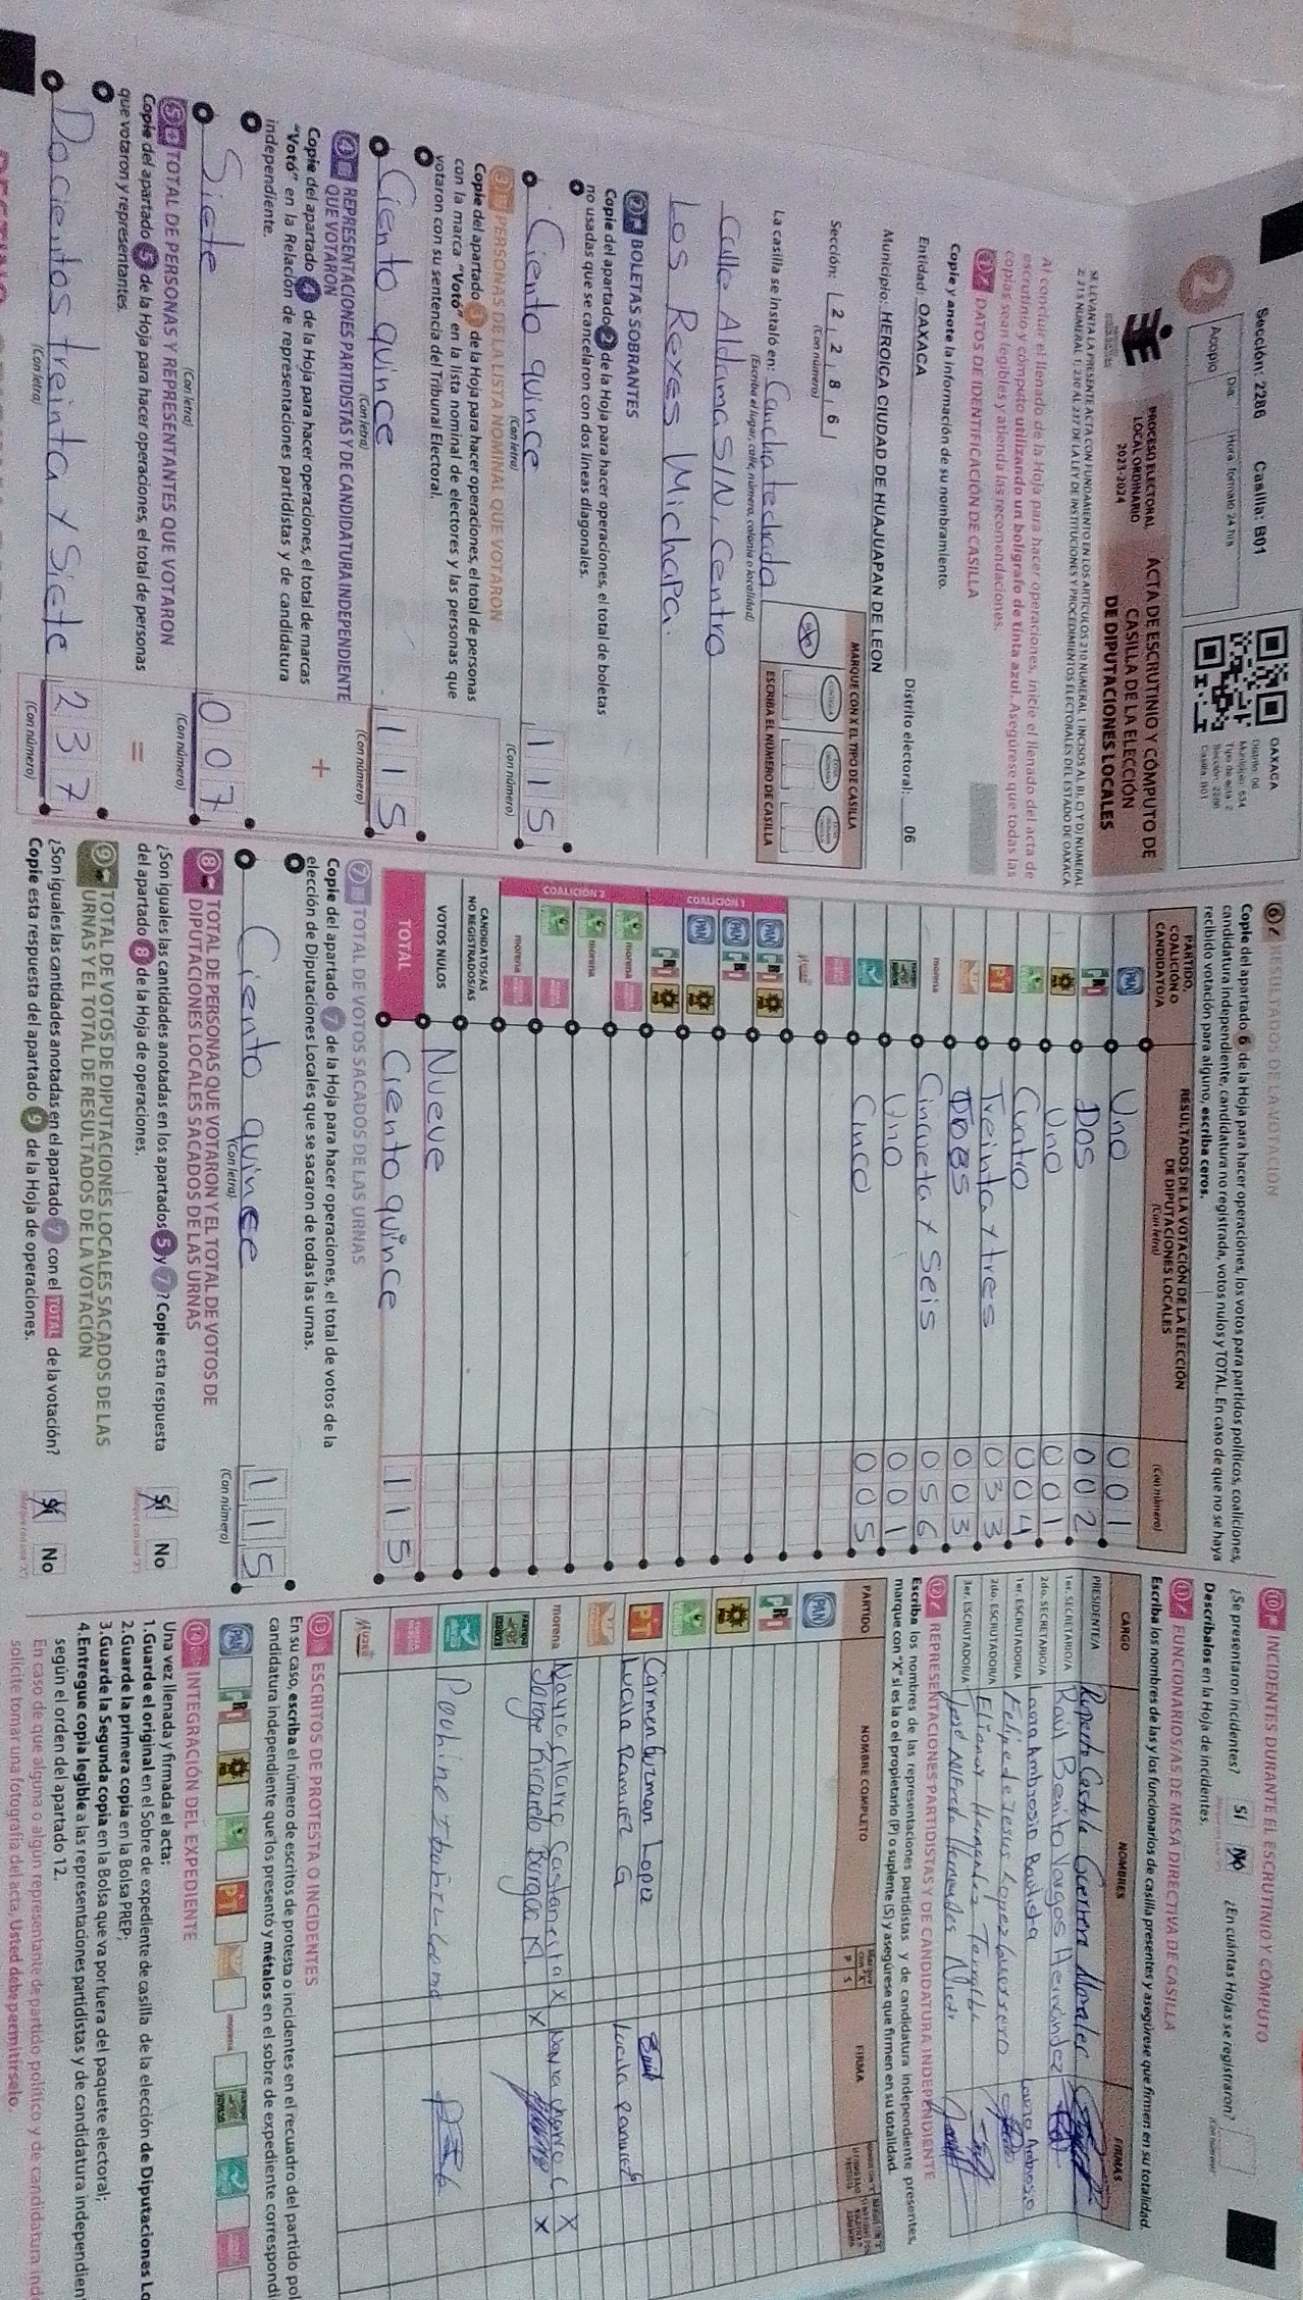 Sección: 2286 Casilla: B01
OAXACA
Distrito: 06
Municipio: 634
Tipo de acta: 2
Sección: 2286
Casilla: B01
2
Acopio
Día
Hora: formato 24 hrs
PROCESO ELECTORAL
LOCAL ORDINARIO
2023-2024
ACTA DE ESCRUTINIO Y CÓMPUTO DE
CASILLA DE LA ELECCIÓN
DE DIPUTACIONES LOCALES
SE LEVANTA LA PRESENTE ACTA CON FUNDAMENTO EN LOS ARTÍCULOS 210 NUMERAL 1 INCISOS A), B), C) Y D) NUMERAL
2; 215 NUMERAL 1; 230 AL 237 DE LA LEY DE INSTITUCIONES Y PROCEDIMIENTOS ELECTORALES DEL ESTADO DE OAXACA
Al concluir el llenado de la Hoja para hacer operaciones, inicie el llenado del acta de
escrutinio y cómputo utilizando un bolígrafo de tinta azul. Asegúrese que todas las
copias sean legibles y atienda las recomendaciones.
1 DATOS DE IDENTIFICACIÓN DE CASILLA
Copie y anote la información de su nombramiento.
Entidad: OAXACA Distrito electoral: 06
Municipio: HEROICA CIUDAD DE HUAJUAPAN DE LEON
Sección: 2 2 8 6
(Con número)
MARQUE CON X EL TIPO DE CASILLA
ESCRIBA EL NÚMERO DE CASILLA
La casilla se instaló en: Canchia techada
(Escriba el lugar, calle, número, colonia o localidad)
Calle Aldama S/N, Centro
Los Reyes Michapa.
2 BOLETAS SOBRANTES
Copie del apartado 2 de la Hoja para hacer operaciones, el total de boletas
no usadas que se cancelaron con dos líneas diagonales.
Ciento quince 115
(Con letra) (Con número)
3 PERSONAS DE LA LISTA NOMINAL QUE VOTARON
Copie del apartado 3 de la Hoja para hacer operaciones, el total de personas
con la marca "Votó" en la lista nominal de electores y las personas que
votaron con su sentencia del Tribunal Electoral.
Ciento quince 115
(Con letra) (Con número)
4 REPRESENTACIONES PARTIDISTAS Y DE CANDIDATURA INDEPENDIENTE
QUE VOTARON
Copie del apartado 4 de la Hoja para hacer operaciones, el total de marcas
"Votó" en la Relación de representaciones partidistas y de candidatura
independiente.
+
Siete 007
(Con letra) (Con número)
5 TOTAL DE PERSONAS Y REPRESENTANTES QUE VOTARON
Copie del apartado 5 de la Hoja para hacer operaciones, el total de personas
que votaron y representantes.
=
Docientos treinta y Siete 237
(Con letra) (Con número)
6 RESULTADOS DE LA VOTACIÓN
Copie del apartado 6 de la Hoja para hacer operaciones, los votos para partidos políticos, coaliciones,
candidatura independiente, candidatura no registrada, votos nulos y TOTAL. En caso de que no se haya
recibido votación para alguno, escriba ceros.
PARTIDO,
COALICIÓN O
CANDIDATO/A
RESULTADOS DE LA VOTACIÓN DE LA ELECCIÓN
DE DIPUTACIONES LOCALES
(Con letra)
(Con número)
PAN Uno 001
PRI Dos 002
PRD Uno 001
Cuatro 004
PT Treinta y tres 033
003
morena Cincueta y Seis 056
Uno 001
Cinco 005
COALICIÓN 1
PAN PRI PRD
PAN PRI
PAN PRD
PRI PRD
COALICIÓN 2
morena
morena
morena
CANDIDATOS/AS
NO REGISTRADOS/AS
VOTOS NULOS Nueve
TOTAL Ciento quince 115
7 TOTAL DE VOTOS SACADOS DE LAS URNAS
Copie del apartado 7 de la Hoja para hacer operaciones, el total de votos de la
elección de Diputaciones Locales que se sacaron de todas las urnas.
Ciento quince 115
(Con letra) (Con número)
8 TOTAL DE PERSONAS QUE VOTARON Y EL TOTAL DE VOTOS DE
DIPUTACIONES LOCALES SACADOS DE LAS URNAS
¿Son iguales las cantidades anotadas en los apartados 5 y 7? Copie esta respuesta
del apartado 8 de la Hoja de operaciones.
Sí No
9 TOTAL DE VOTOS DE DIPUTACIONES LOCALES SACADOS DE LAS
URNAS Y EL TOTAL DE RESULTADOS DE LA VOTACIÓN
¿Son iguales las cantidades anotadas en el apartado 7 con el TOTAL de la votación?
Copie esta respuesta del apartado 9 de la Hoja de operaciones.
Sí No
10 INCIDENTES DURANTE EL ESCRUTINIO Y CÓMPUTO
¿Se presentaron incidentes? Sí No ¿En cuántas Hojas se registraron?
Descríbalos en la Hoja de incidentes.
11 FUNCIONARIOS/AS DE MESA DIRECTIVA DE CASILLA
Escriba los nombres de las y los funcionarios de casilla presentes y asegúrese que firmen en su totalidad.
CARGO NOMBRES FIRMAS
PRESIDENTE/A Ruperto Castulo Guerrero Morales
1er. SECRETARIO/A Raúl Benito Vargas Hernández
2do. SECRETARIO/A Laura Ambrosio Bautista Laura Ambrosio
1er. ESCRUTADOR/A Felipe de Jesus Lopez Guerrero
2do. ESCRUTADOR/A Hernandez
3er. ESCRUTADOR/A José Alfredo Hernandez Nieto
12 REPRESENTACIONES PARTIDISTAS Y DE CANDIDATURA INDEPENDIENTE
Escriba los nombres de las representaciones partidistas y de candidatura independiente presentes,
marque con "X" si es la o el propietario (P) o suplente (S) y asegúrese que firmen en su totalidad.
PARTIDO NOMBRE COMPLETO P S FIRMA
PAN
PRI
PRD
Carmen Guzman Lopez
PT Lucila Ramirez G Lucila Ramirez
morena Nayra charro Castaneita X Nayra charro C X
Jorge Ricardo X X
13 ESCRITOS DE PROTESTA O INCIDENTES
En su caso, escriba el número de escritos de protesta o incidentes en el recuadro del partido pol
candidatura independiente que los presentó y métalos en el sobre de expediente correspondi
PAN PRI PRD PT morena
14 INTEGRACIÓN DEL EXPEDIENTE
Una vez llenada y firmada el acta:
1.Guarde el original en el Sobre de expediente de casilla de la elección de Diputaciones Lo
2.Guarde la primera copia en la Bolsa PREP;
3.Guarde la Segunda copia en la Bolsa que va por fuera del paquete electoral;
4.Entregue copia legible a las representaciones partidistas y de candidatura independien
según el orden del apartado 12.
En caso de que alguna o algún representante de partido político y de candidatura ind
solicite tomar una fotografía del acta, Usted debe permitírselo.